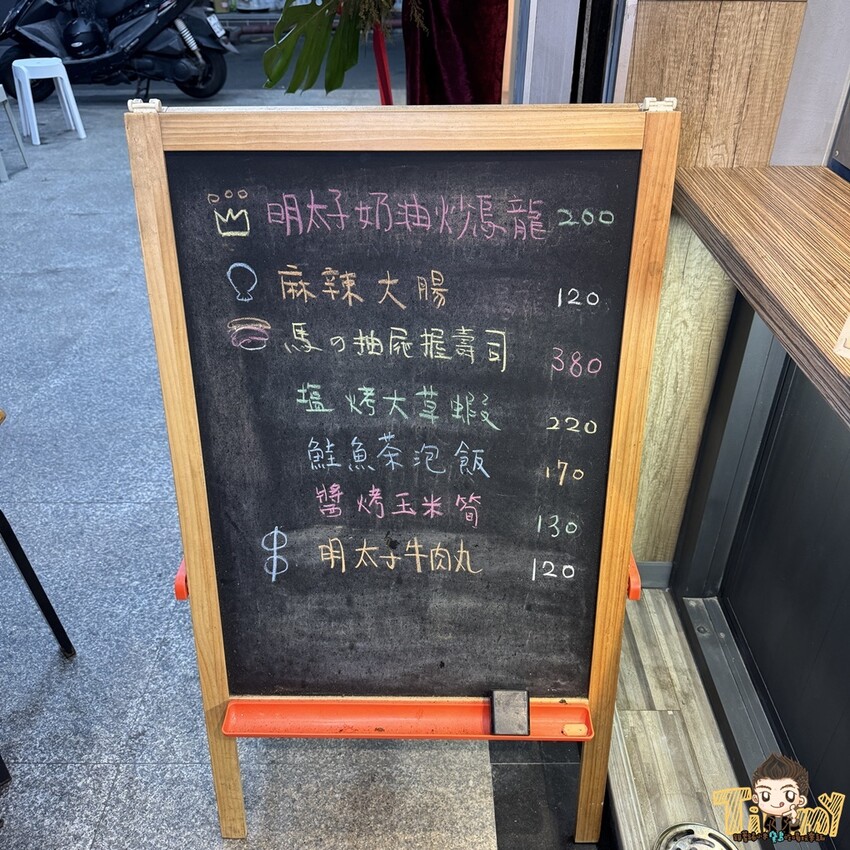 明太子奶油炒烏龍 200
麻辣大腸 120
馬の抽屜握壽司 380
塩烤大草蝦 220
鮭魚茶泡飯 170
醬烤玉米筍 130
$ 明太子牛肉丸 120
TimmY